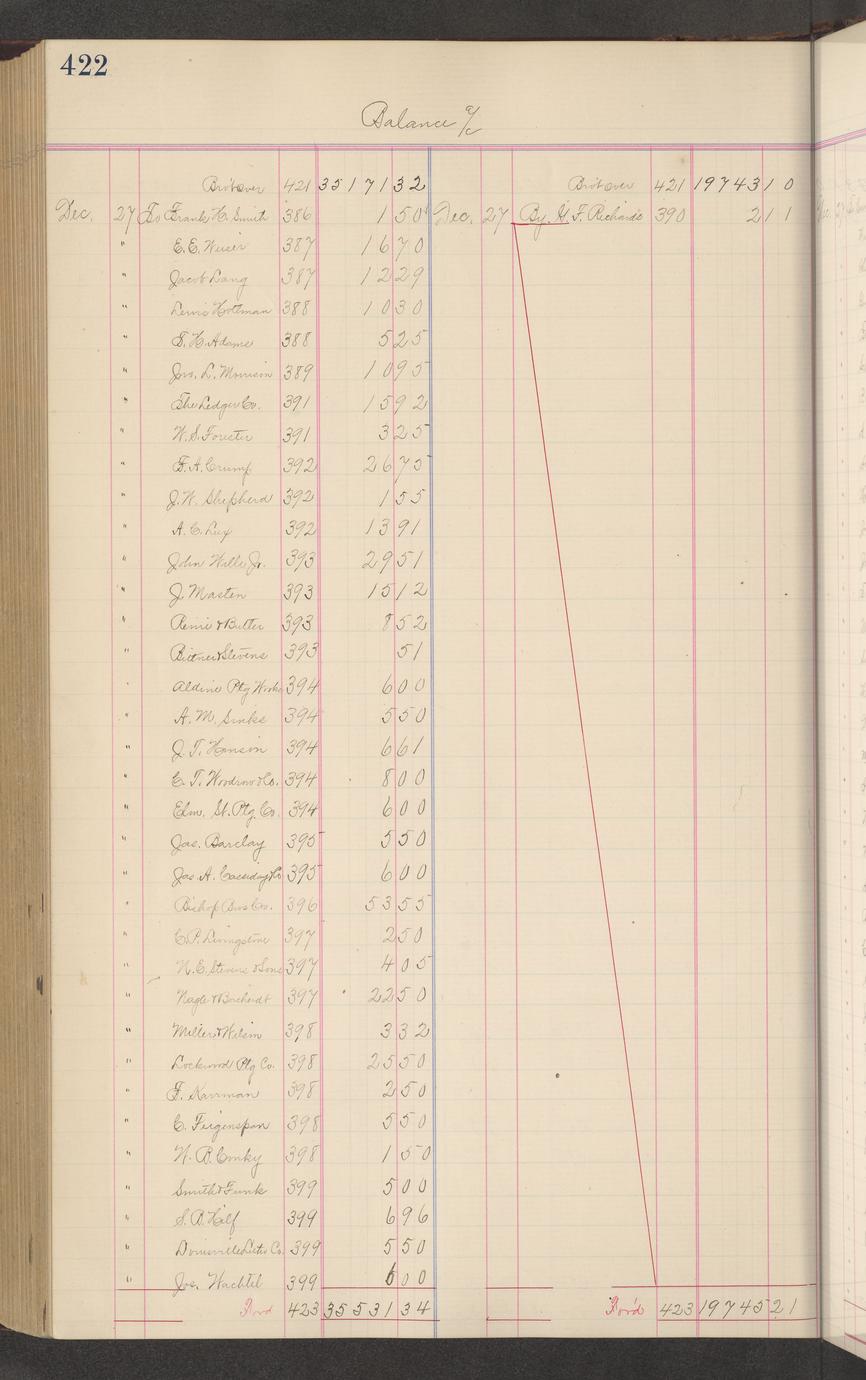 422
Balance a/c
Bro't over 421 35171 32 Bro't over 421 19743 10
Dec. 27 To Frank H. Smith 386 1 50 Dec. 27 By F. Richards 390 2 11
" E. E. Weiser 387 16 70
" Jacob Lang 387 12 29
" Lewis Holtman 388 10 30
" S. H. Adams 388 5 25
" Jos. L. Morrison 389 10 95
" The Ledger Co. 391 15 92
" W. S. Forester 391 3 25
" F. A. Crump 392 26 75
" J. W. Shepherd 392 1 55
" A. C. Lux 392 13 91
" John Wills Jr. 393 29 51
" J. Masten 393 15 12
" & Butler 393 8 52
" Bittner & Stevens 393 51
" Aldine Ptg Works 394 6 00
" A. M. Sinks 394 5 50
" J. T. Hanson 394 6 61
" C. T. Woodrow & Co. 394 8 00
" Elm. St. Ptg Co. 394 6 00
" Jas. Barclay 395 5 50
" Jas. A. Cassiday & Co 395 6 00
" Bishop Bros Co. 396 53 55
" C. P. Livingstone 397 2 50
" N. E. Stevens & Sons 397 4 05
" Nagle & Borcherdt 397 22 50
" Miller & Wilson 398 3 32
" Lockwood Ptg Co. 398 25 50
" F. Karrman 398 2 50
" C. Feigenspan 398 5 50
" W. B. Conky 398 1 50
" Smith & Funk 399 5 00
" S. B. Half 399 6 96
" Co. 399 5 50
" Jos. Wachtel 399 6 00
Ford 423 35531 34 For'd 423 19745 21